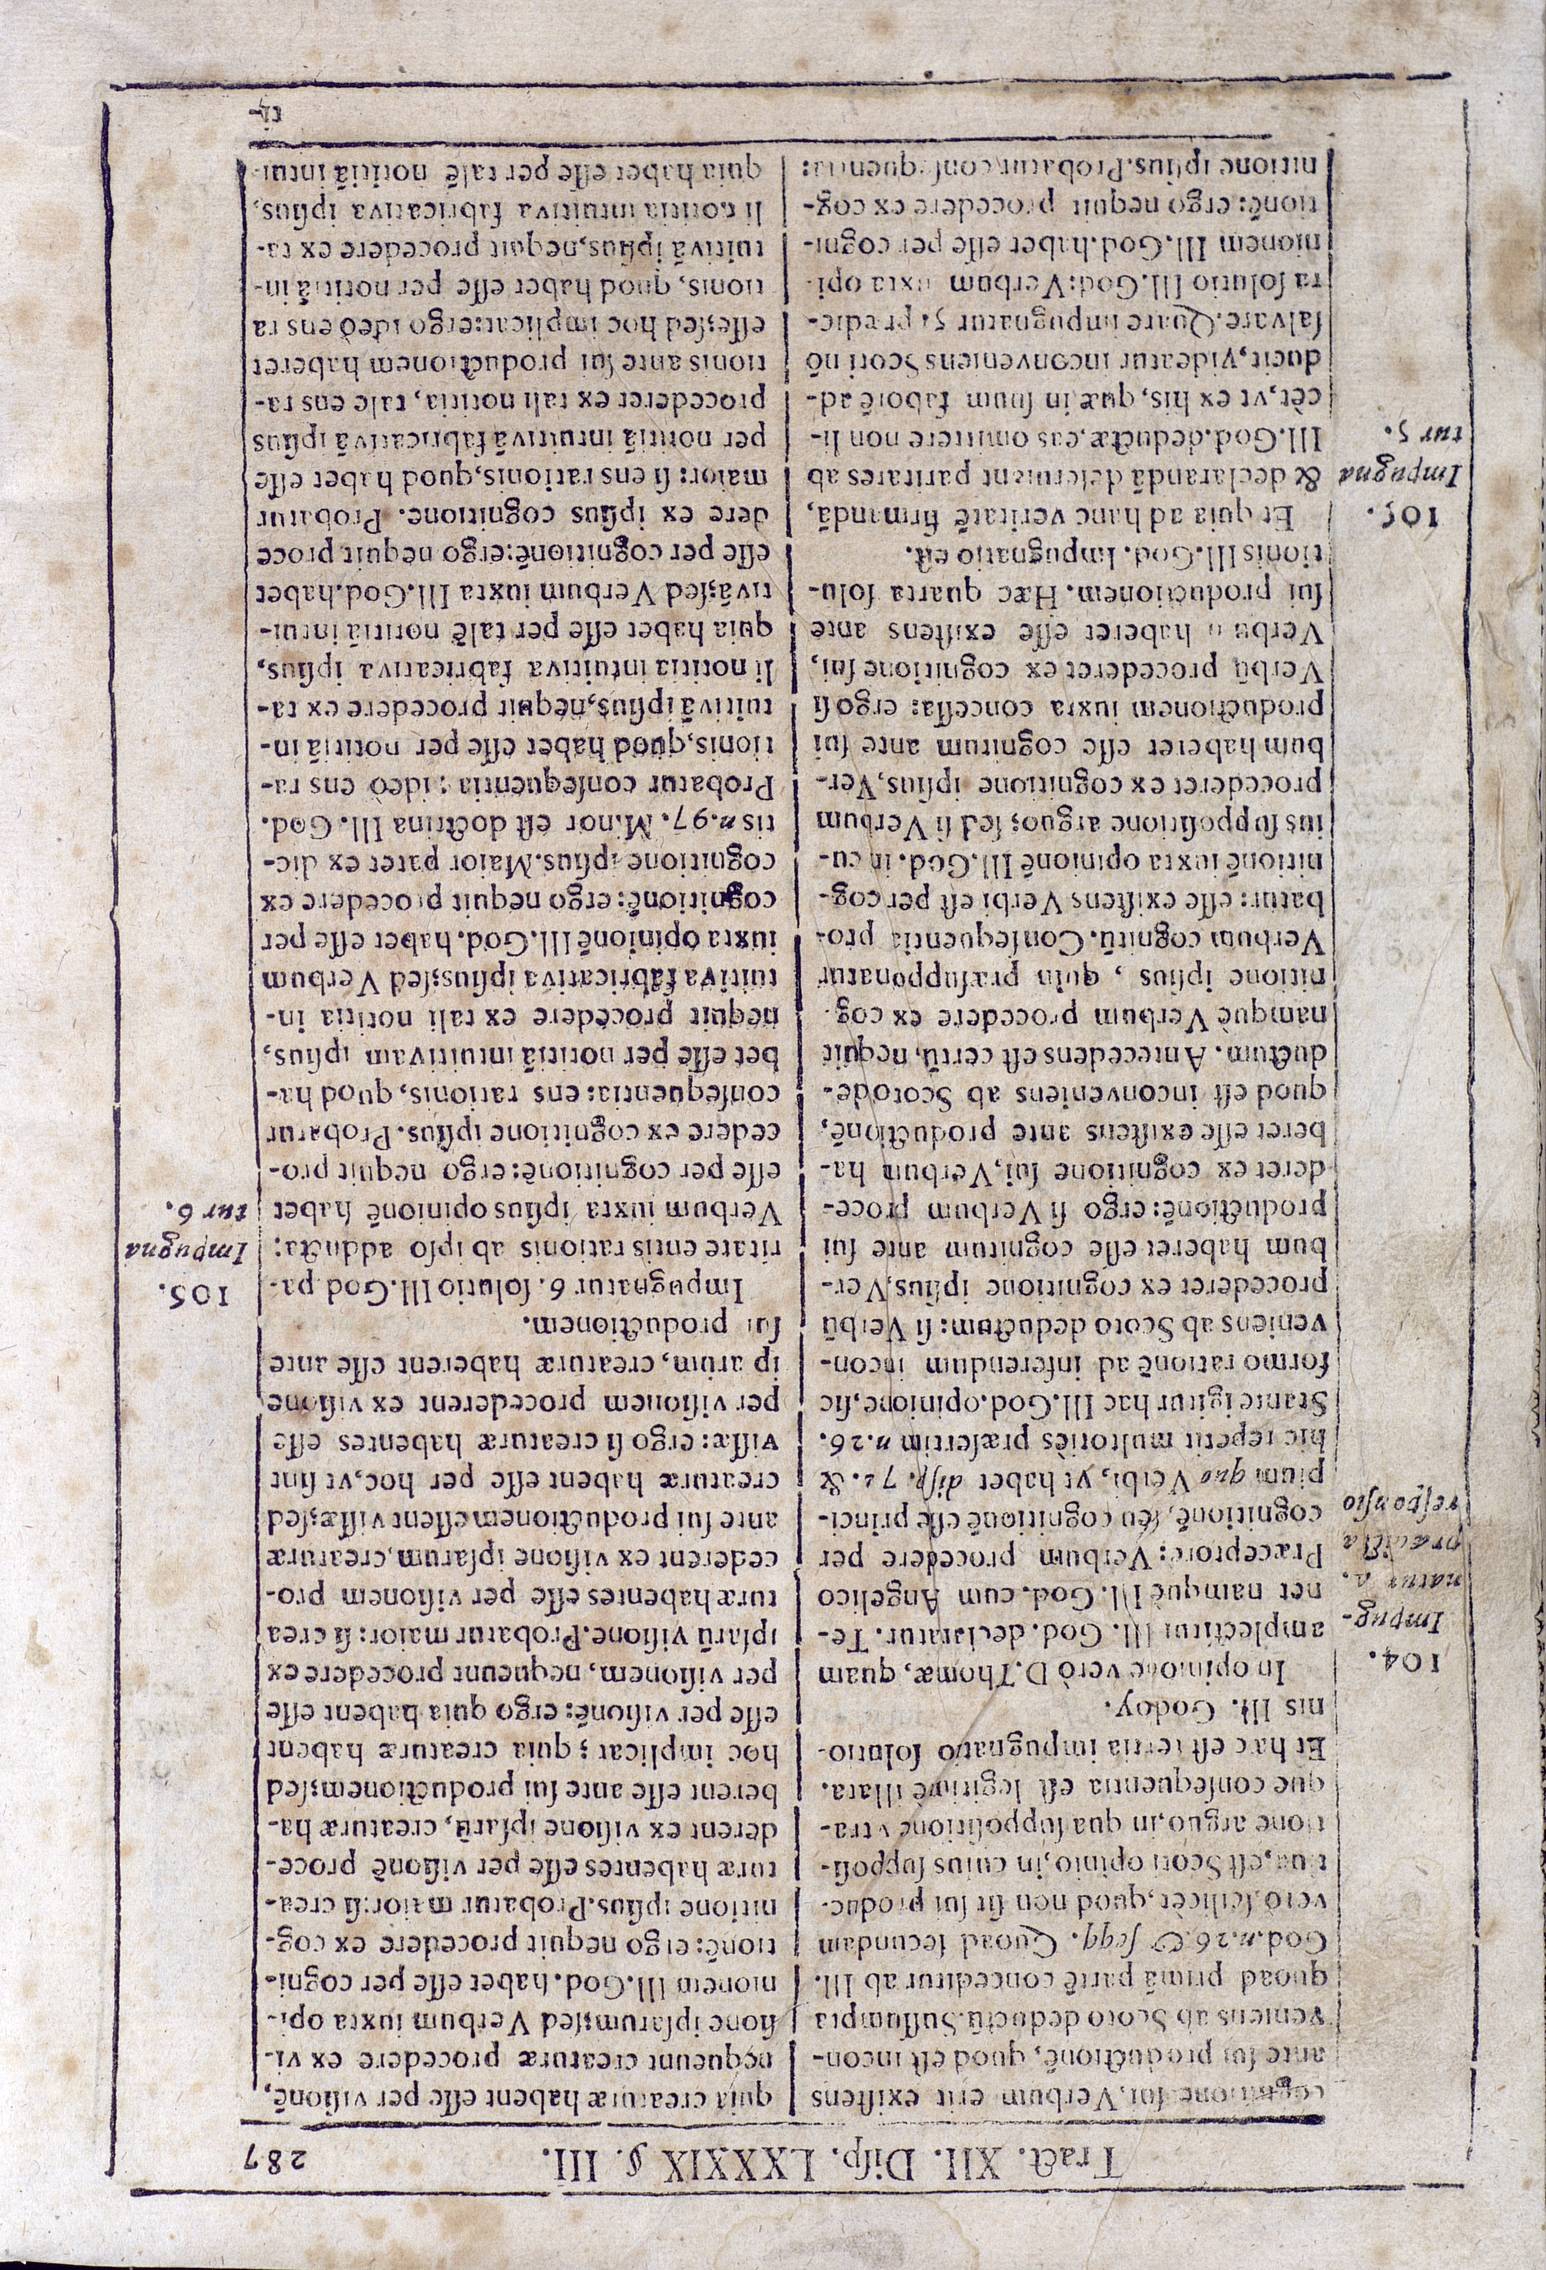 Tract. XII. Diſp. LXXXIX §. III. 287
cognitione ſui, Verbum erit exiſtens
ante ſui productionẽ, quod eſt incon-
veniens ab Scoto deductũ. Suſſumpta
quoad primã partẽ conceditur ab Ill.
God. n. 26. & ſeqq. Quoad ſecundam
verò, ſcilicèt, quod non ſit ſui produc-
tiva, eſt Scoti opinio, in cuius ſuppoſi-
tione arguo, in qua ſuppoſitione vtra-
que conſequentia eſt legitimè illata.
Et hæc eſt tertia impugnatio ſolutio-
nis Ill. Godoy.
104.
Impug-
natur 2.
prædicta
reſponſio
In opinione verò D. Thomæ, quam
amplectitur Ill. God. declaratur. Te-
net namquè Ill. God. cum Angelico
Præceptore: Verbum procedere per
cognitionẽ, ſeu cognitionẽ eſſe princi-
pium quo Verbi, vt habet diſp. 72. &
hic repetit multotiès præſertim n. 26.
Stante igitur hac Ill. God. opinione, ſic
formo rationẽ ad inferendum incon-
veniens ab Scoto deductum: ſi Verbũ
procederet ex cognitione ipſius, Ver-
bum haberet eſſe cognitum ante ſui
productionẽ: ergo ſi Verbum proce-
deret ex cognitione ſui, Verbum ha-
beret eſſe exiſtens ante productionẽ,
quod eſt inconveniens ab Scoto de-
ductum. Antecedens eſt certũ, nequit
namquè Verbum procedere ex cog-
nitione ipſius, quin præſupponatur
Verbum cognitũ. Conſequentia pro-
batur: eſſe exiſtens Verbi eſt per cog-
nitionẽ iuxta opinionẽ Ill. God. in cu-
ius ſuppoſitione arguo; ſed ſi Verbum
procederet ex cognitione ipſius, Ver-
bum haberet eſſe cognitum ante ſui
productionem iuxta conceſſa: ergo ſi
Verbũ procederet ex cognitione ſui,
Verbum haberet eſſe exiſtens ante
ſui productionem. Hæc quarta ſolu-
tionis Ill. God. Impugnatio eſt.
105.
Impugna
tur 5.
Et quia ad hanc veritatẽ firmandã,
& declarandã deſerviunt paritates ab
Ill. God. deductæ, eas omittere non li-
cèt, vt ex his, quæ in ſuum faborẽ ad-
ducit, videatur inconveniens Scoti nõ
ſalvare. Quare impugnatur 5. prædic-
ta ſolutio Ill. God: Verbum iuxta opi-
nionem Ill. God. habet eſſe per cogni-
tionẽ: ergo nequit procedere ex cog-
nitione ipſius. Probatur conſequentia:
quia creaturæ habent eſſe per viſionẽ,
nequeunt creaturæ procedere ex vi-
ſione ipſarum; ſed Verbum iuxta opi-
nionem Ill. God. habet eſſe per cogni-
tionẽ: ergo nequit procedere ex cog-
nitione ipſius. Probatur maior: ſi crea-
turæ habentes eſſe per viſionẽ proce-
derent ex viſione ipſarũ, creaturæ ha-
berent eſſe ante ſui productionem; ſed
hoc implicat; quia creaturæ habent
eſſe per viſionẽ: ergo quia habent eſſe
per viſionem, nequeunt procedere ex
ipſarũ viſione. Probatur maior: ſi crea
turæ habentes eſſe per viſionem pro-
cederent ex viſione ipſarum, creaturæ
ante ſui productionem eſſent viſſæ; ſed
creaturæ habent eſſe per hoc, vt ſint
viſſæ: ergo ſi creaturæ habentes eſſe
per viſionem procederent ex viſione
ipſarum, creaturæ haberent eſſe ante
ſui productionem.
105.
Impugna
tur 6.
Impugnatur 6. ſolutio Ill. God. pa-
ritate entis rationis ab ipſo adducta:
Verbum iuxta ipſius opinionẽ habet
eſſe per cognitionẽ: ergo nequit pro-
cedere ex cognitione ipſius. Probatur
conſequentia: ens rationis, quod ha-
bet eſſe per notitiã intuitivam ipſius,
nequit procedere ex tali notitia in-
tuitiva fabricativa ipſius; ſed Verbum
iuxta opinionẽ Ill. God. habet eſſe per
cognitionẽ: ergo nequit procedere ex
cognitione ipſius. Maior patet ex dic-
tis n. 97. Minor eſt doctrina Ill. God.
Probatur conſequentia: ideò ens ra-
tionis, quod habet eſſe per notitiã in-
tuitivã ipſius, nequit procedere ex ta-
li notitia intuitiva fabricativa ipſius,
quia habet eſſe per talẽ notitiã intui-
tivã; ſed Verbum iuxta Ill. God. habet
eſſe per cognitionẽ: ergo nequit proce
dere ex ipſius cognitione. Probatur
maior: ſi ens rationis, quod habet eſſe
per notitiã intuitivã fabricativã ipſius
procederet ex tali notitia, tale ens ra-
tionis ante ſui productionem haberet
eſſe; ſed hoc implicat: ergo ideò ens ra
tionis, quod habet eſſe per notitiã in-
tuitivã ipſius, nequit procedere ex ta-
li notitia intuitiva fabricativa ipſius,
quia habet eſſe per talẽ notitiã intui-
ti-